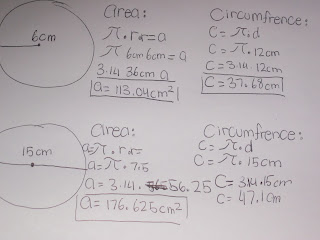 6cm
area:
π.r2=a
π 6cm 6cm=a
3.14 36cm a
a=113.04cm²
Circumfrence:
C=π.d
C=π.12cm
C=3.14 12cm
C=37.68cm
15cm
area:
a=π.r2=
a=π.7.5
a=3.14.56.25
a=176.625cm²
Circumfrence:
C=π.d
C=π.15cm
C=3.14.15cm
C=47.1cm